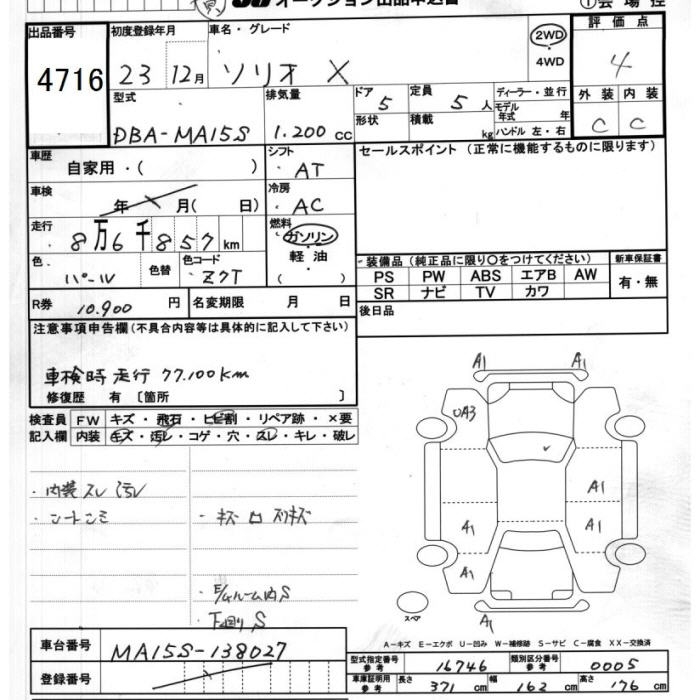 オークション出品申込書
①会場控
出品番号
4716
初度登録年月
23 12月
車名・グレード
ソリオ X
2WD
・
4WD
評価点
4
外装 内装
C C
型式
DBA-MA15S
排気量
1.200 cc
ドア 5
形状
定員 5 人
積載 kg
ディーラー・並行
モデル年式 年
ハンドル 左・右
車歴
自家用・( )
シフト
・ AT
セールスポイント (正常に機能するものに限ります)
車検
年 月( 日)
冷房
・ AC
走行
8万6千857 km
燃料
・ガソリン
軽油
( )
色
パール
色替
色コード
Z7T
装備品 (純正品に限り○をつけてください)
PS PW ABS エアB AW
SR ナビ TV カワ
新車保証書
有・無
R券 10.900 円
名変期限 月 日
後日品
注意事項申告欄(不具合内容等は具体的に記入して下さい)
車検時走行 77.100km
修復歴 有 〔箇所 〕
検査員
記入欄
FW キズ・飛石・ヒビ割・リペア跡・×要
内装 キズ・汚レ・コゲ・穴・スレ・キレ・破レ
・内装スレ汚レ
・シートシミ
・キズ ロ スリキズ
・E/gルーム内S
下回りS
A1 A1
UA3
A1
A1 A1
A1
A1
スペア
A-キズ E-エクボ U-凹み W-補修跡 S-サビ C-腐食 XX-交換済
車台番号
MA15S-138027
登録番号
型式指定番号 参考
16746
類別区分番号 参考
0005
車庫証明用 参考
長さ 371 cm
幅 162 cm
高さ 176 cm